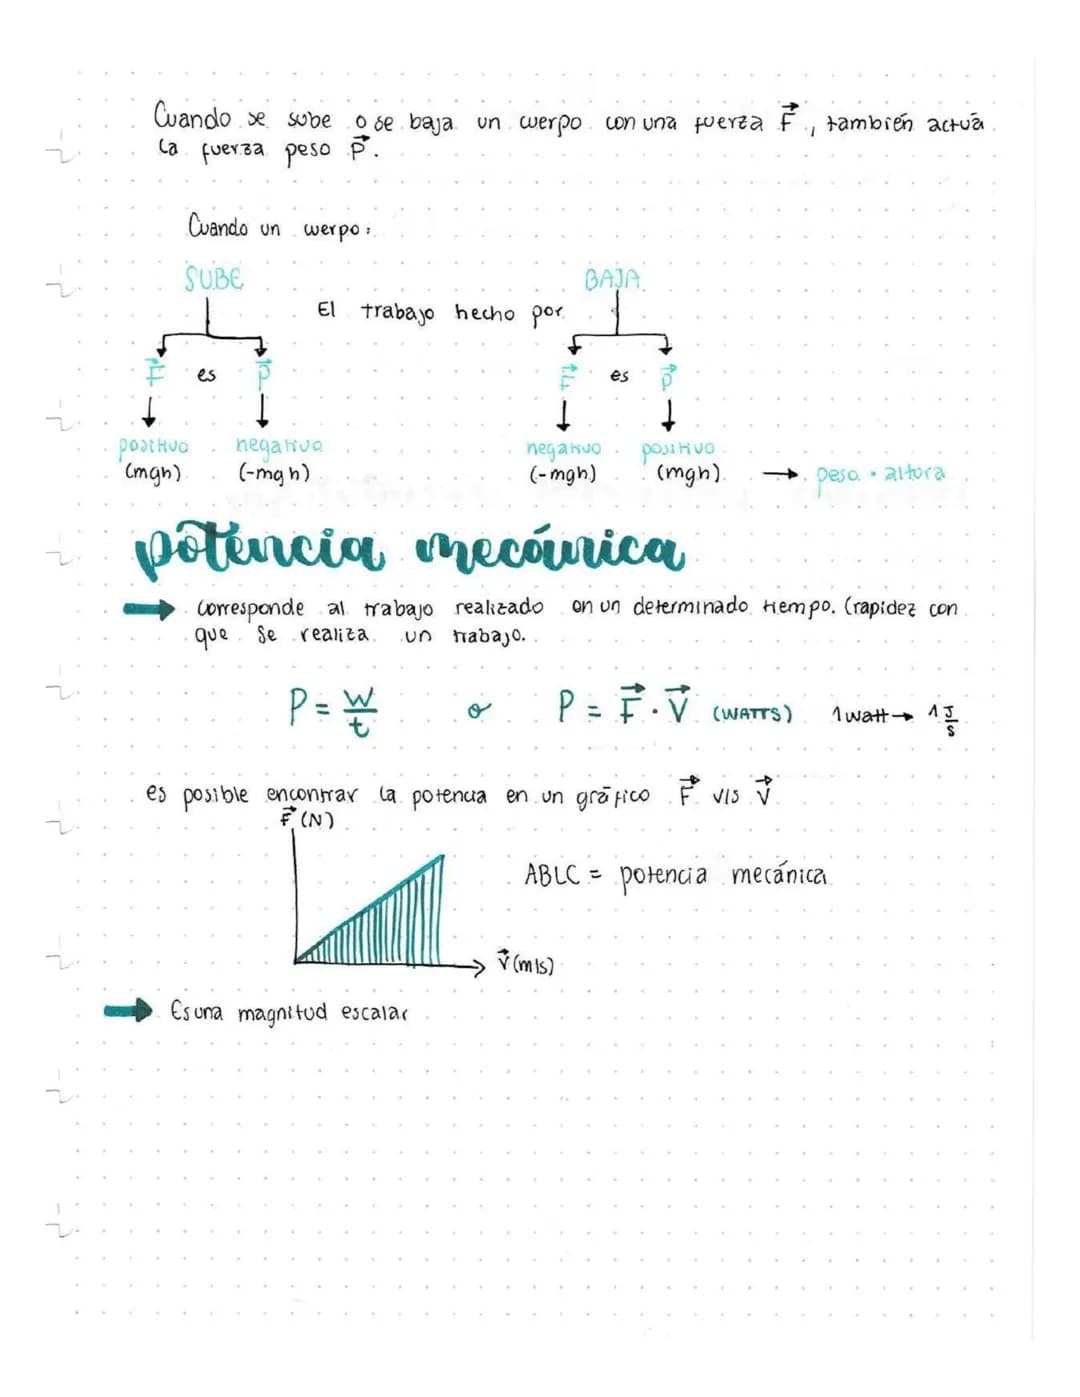 Cuando se sube o se baja un cuerpo con una fuerza F⃗, también actúa
la fuerza peso P⃗.
Cuando un cuerpo:
SUBE
BAJA
El trabajo hecho por
F⃗ es P⃗
F⃗ es P⃗
positivo negativo
negativo positivo
(mgh) (-mgh)
(-mgh) (mgh) → peso · altura
potencia mecánica
corresponde al trabajo realizado en un determinado tiempo. (rapidez con
que se realiza un trabajo.
P = W/t o P = F⃗ · V⃗ (WATTS) 1 watt → 1 J/s
es posible encontrar la potencia en un gráfico F⃗ v/s V⃗
F⃗ (N)
ABLC = potencia mecánica
V⃗ (m/s)
Es una magnitud escalar